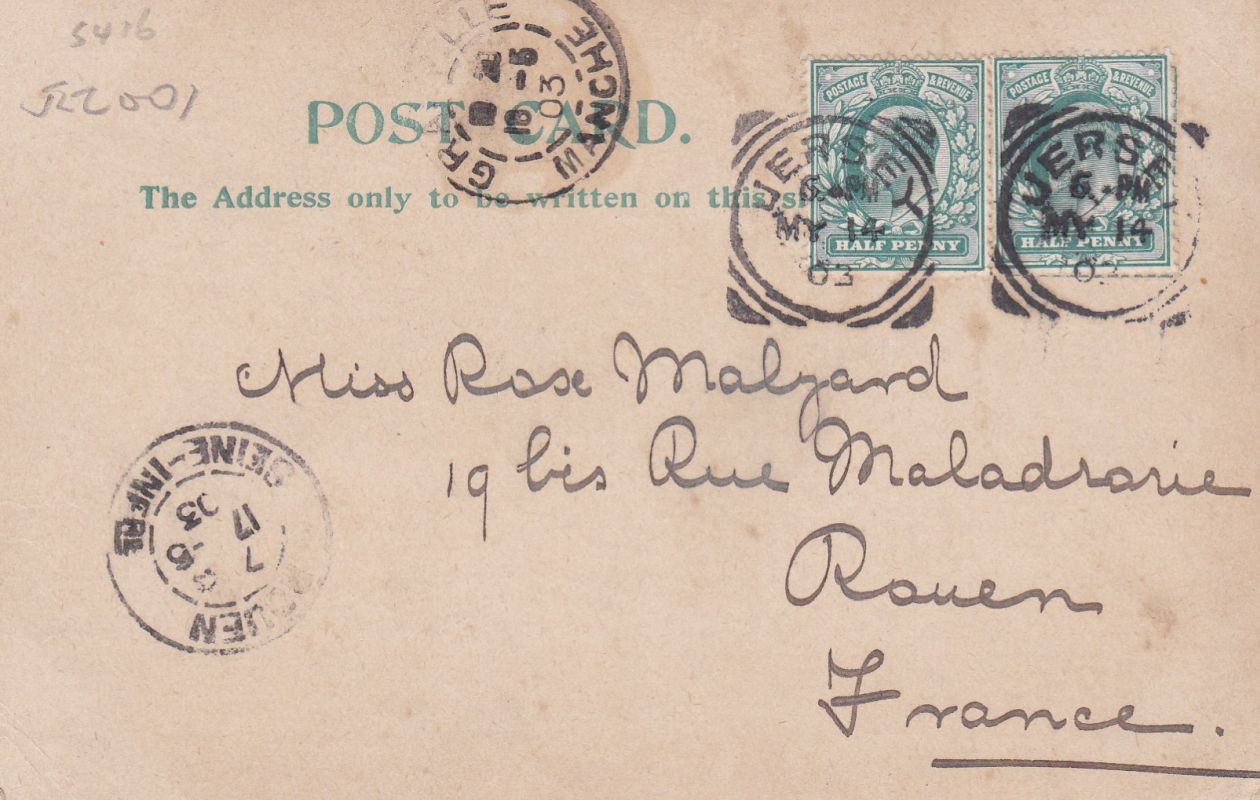 5416
POST CARD.
The Address only to be written on this
POSTAGE & REVENUE
HALF PENNY
POSTAGE & REVENUE
HALF PENNY
JERSEY
6 - PM
MY 14
03
JERSEY
6 - PM
MY 14
03
MANCHE
03
Miss Rose Malzard
19 bis Rue Maladrarie
Rouen
France.
ROUEN
7
17 - 5
03
SEINE-INFRE